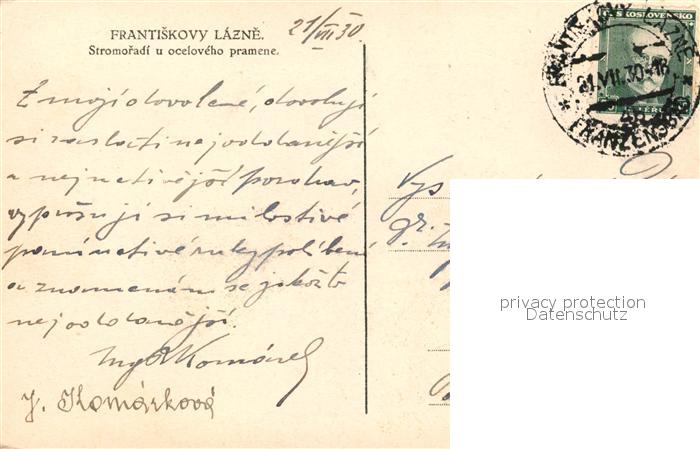 FRANTIŠKOVY LÁZNĚ.
Stromořadí u ocelového pramene.
21/VII 30
ČESKOSLOVENSKO
FRANTIŠKOVY LÁZNĚ
21.VII.30.-16
FRANZENSBAD
Z mojí dovolené, dovoluji
si zaslati nejoddanější
a nejuctivější pozdrav,
vyprošuji si milostivé
paní uctivé ruky políbení
a znamenám se jakožto
nejoddanější.
Ing Komárek
J. Komárková
Vys
privacy protection
Datenschutz